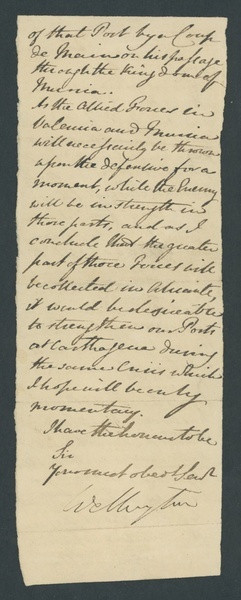 of that Port by a Coup
de Main on his passage
through the Kingdom of
Murcia.
As the Allied Forces in
Valencia and Murcia
will necessarily be thrown
upon the defensive for a
moment, while the Enemy
will be in strength in
those parts, and as I
conclude that the greater
part of those Forces will
be collected in Alicante,
it would be desireable
to strengthen our Posts
at Carthagena during
the same Crisis which
I hope will be only
momentary.
I have the honour to be
Sir
Your most obedt Servt
Wellington